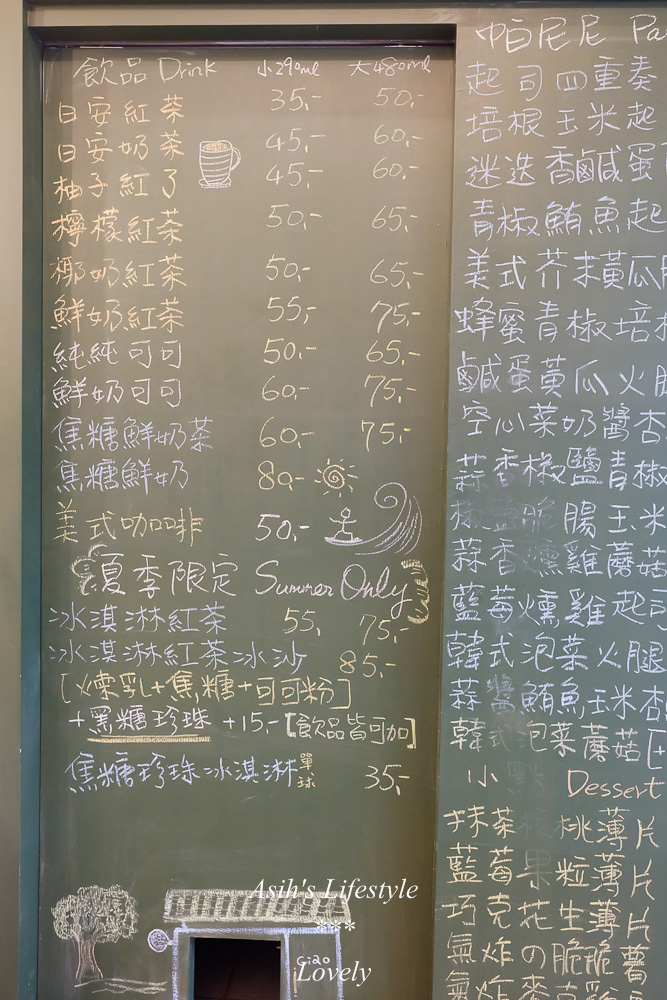 飲品 Drink 小290ml 大480ml
日安紅茶 35.- 50.-
日安奶茶 45.- 60.-
柚子紅了 45.- 60.-
檸檬紅茶 50.- 65.-
椰奶紅茶 50.- 65.-
鮮奶紅茶 55.- 75.-
純純可可 50.- 65.-
鮮奶可可 60.- 75.-
焦糖鮮奶茶 60.- 75.-
焦糖鮮奶 80.-
美式咖啡 50.-
夏季限定 Summer Only
冰淇淋紅茶 55. 75.-
冰淇淋紅茶冰沙 85.-
[煉乳+焦糖+可可粉]
+黑糖珍珠 +15.- [飲品皆可加]
焦糖珍珠冰淇淋 單球 35.-
帕尼尼 Pa
起司四重奏
培根玉米起
迷迭香鹹蛋
青椒鮪魚起
美式芥末黃瓜
蜂蜜青椒培根
鹹蛋黃瓜火腿
空心菜奶醬杏
蒜香椒鹽青椒
椒鹽脆腸玉米
蒜香燻雞蘑菇
藍莓燻雞起司
韓式泡菜火腿
蒜醬鮪魚玉米杏
韓式泡菜蘑菇
小點 Dessert
抹茶核桃薄片
藍莓果粒薄片
巧克花生薄片
氣炸の脆脆薯
氣炸
Giao
Asih's Lifestyle
***
Lovely